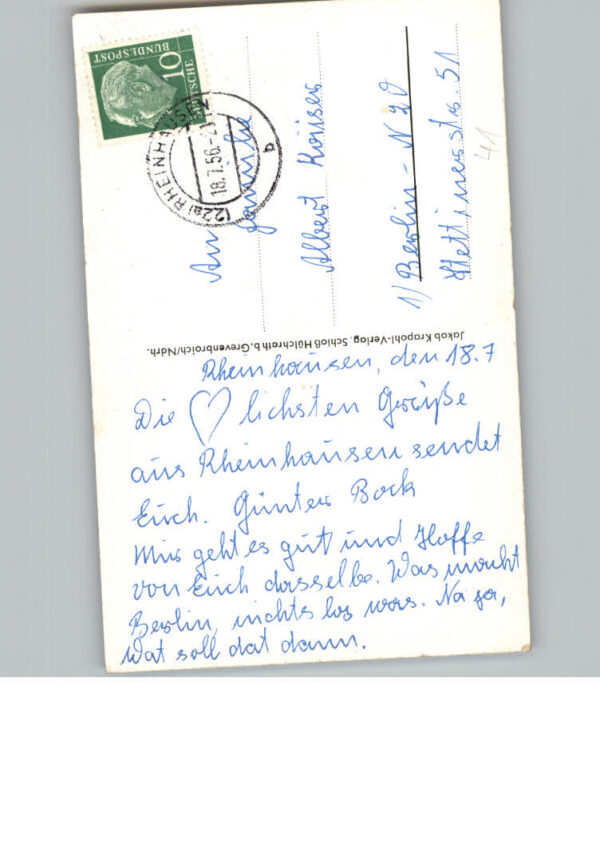 10
DEUTSCHE
BUNDESPOST
(22a) RHEINHAUSEN
18.7.56.-21
b
An
Familie
Albert Kaiser
1) Berlin - N 20
Stettinerstr. 51
41
Jakob Krapohl-Verlag, Schloß Hülchrath b. Grevenbroich/Ndrh.
Rheinhausen, den 18.7
Die ♡ lichsten Grüße
aus Rheinhausen sendet
Euch. Günter Bock
Mir geht es gut und Hoffe
von Euch dasselbe. Was macht
Berlin, nichts los was. Na ja,
wat soll dat dann.